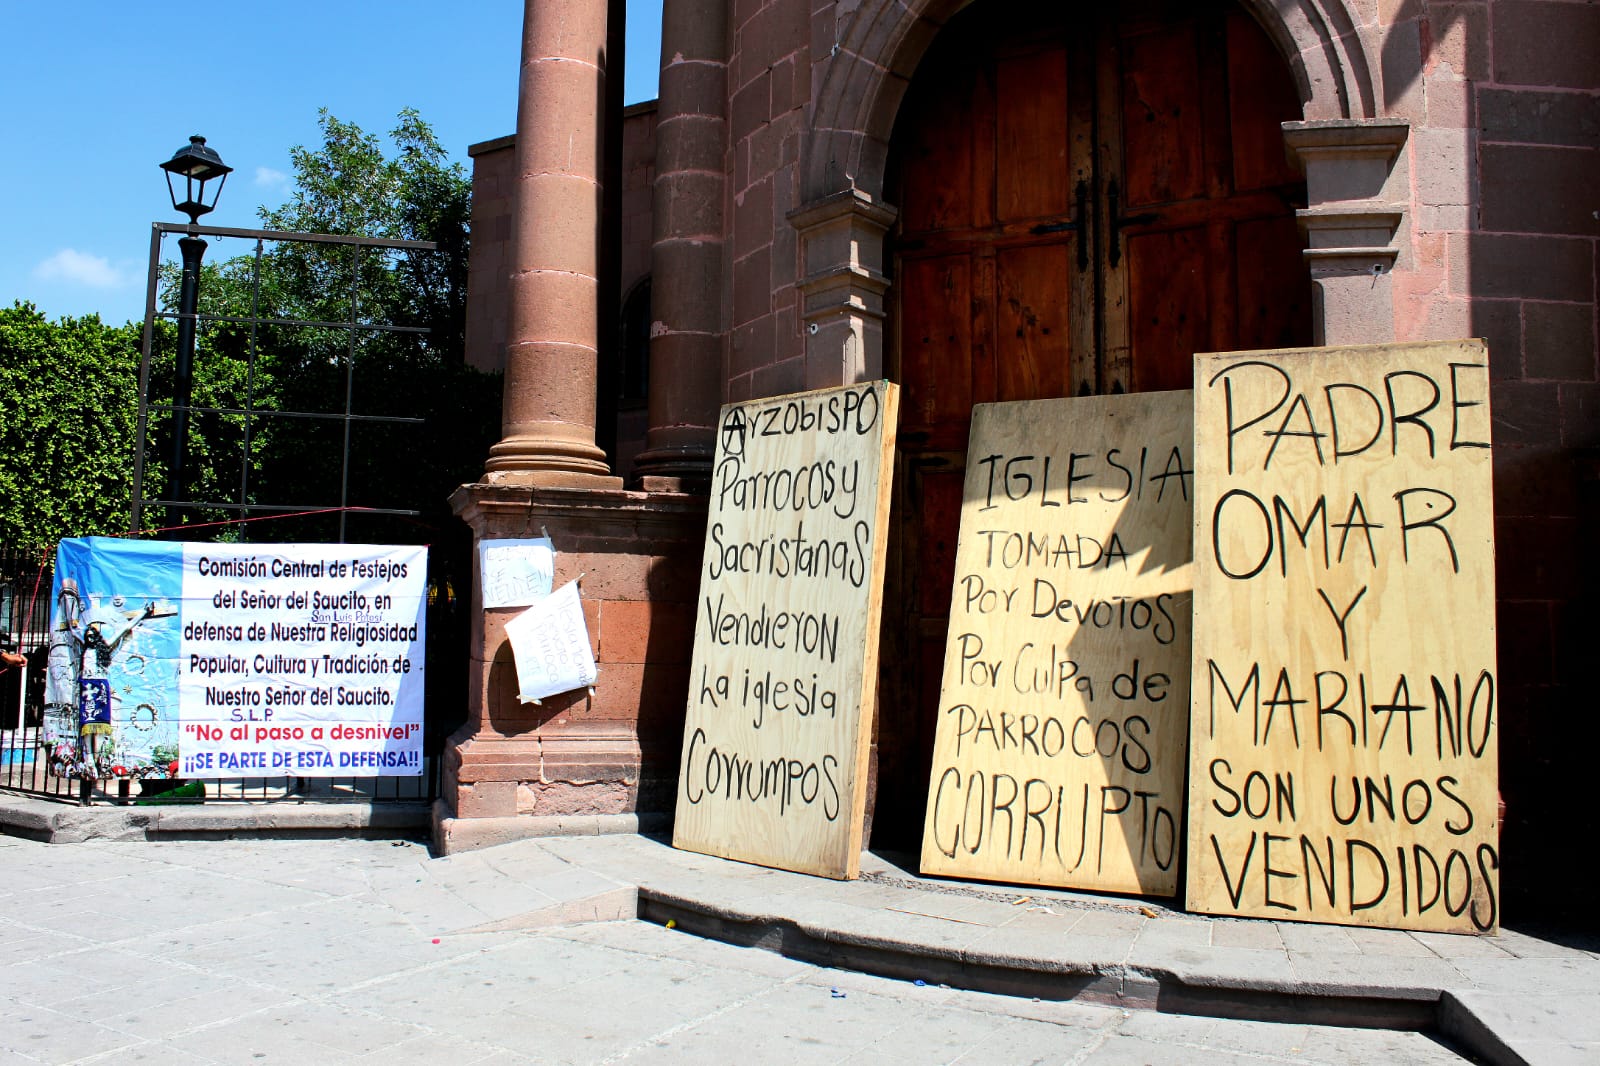 Comisión Central de Festejos
del Señor del Saucito, en
San Luis Potosí
defensa de Nuestra Religiosidad
Popular, Cultura y Tradición de
Nuestro Señor del Saucito.
S.L.P.
“No al paso a desnivel”
¡¡SE PARTE DE ESTA DEFENSA!!
SE
VENDE!!
Arzobispo
Parrocos y
Sacristanas
Vendieron
La iglesia
Corrumpos
IGLESIA
TOMADA
Por Devotos
Por Culpa de
PARROCOS
CORRUPTO
PADRE
OMAR
Y
MARIANO
SON UNOS
VENDIDOS